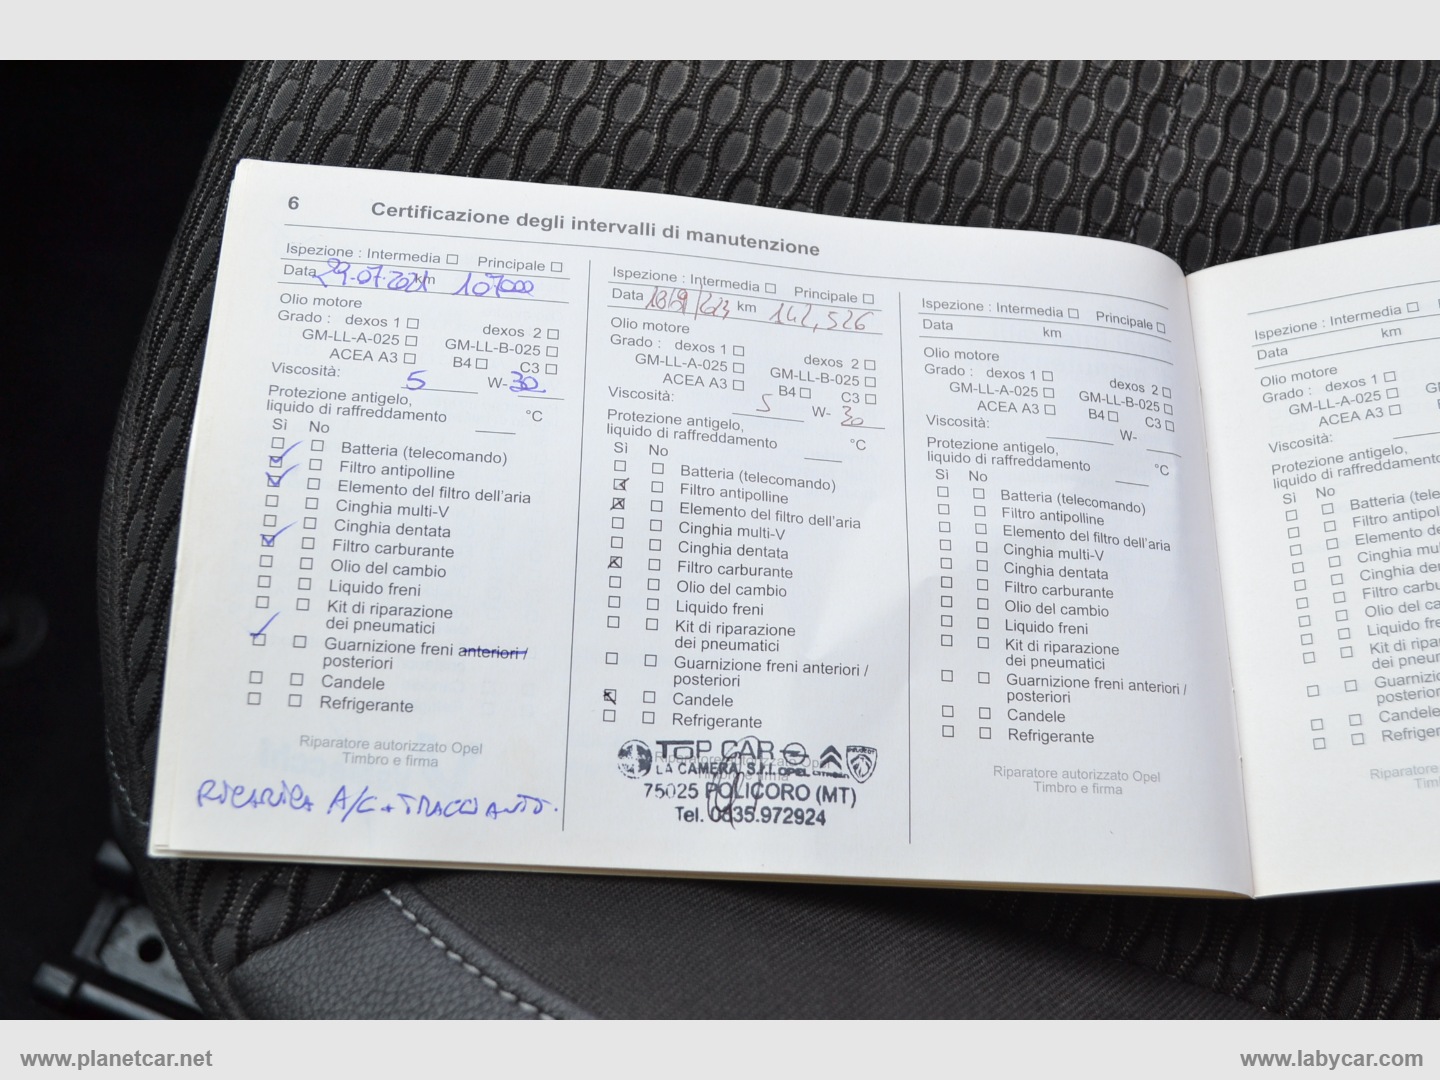 6 Certificazione degli intervalli di manutenzione
Ispezione : Intermedia □ Principale □
Data 29.07.2021 km 107000
Olio motore
Grado : dexos 1 □ dexos 2 □
GM-LL-A-025 □ GM-LL-B-025 □
ACEA A3 □ B4 □ C3 □
Viscosità: 5 W- 30
Protezione antigelo,
liquido di raffreddamento °C
Sì No
Batteria (telecomando)
Filtro antipolline
Elemento del filtro dell'aria
Cinghia multi-V
Cinghia dentata
Filtro carburante
Olio del cambio
Liquido freni
Kit di riparazione
dei pneumatici
Guarnizione freni anteriori /
posteriori
Candele
Refrigerante
Riparatore autorizzato Opel
Timbro e firma
RICARICA A/C +
Ispezione : Intermedia □ Principale □
Data 18/9/23 km 142,526
Olio motore
Grado : dexos 1 □ dexos 2 □
GM-LL-A-025 □ GM-LL-B-025 □
ACEA A3 □ B4 □ C3 □
Viscosità: 5 W- 30
Protezione antigelo,
liquido di raffreddamento °C
Sì No
Batteria (telecomando)
Filtro antipolline
Elemento del filtro dell'aria
Cinghia multi-V
Cinghia dentata
Filtro carburante
Olio del cambio
Liquido freni
Kit di riparazione
dei pneumatici
Guarnizione freni anteriori /
posteriori
Candele
Refrigerante
Riparatore autorizzato Opel
Timbro e firma
TOP CAR
LA CAMERA S.r.l. OPEL CITROËN PEUGEOT
75025 POLICORO (MT)
Tel. 0835.972924
Ispezione : Intermedia □ Principale □
Data km
Olio motore
Grado : dexos 1 □ dexos 2 □
GM-LL-A-025 □ GM-LL-B-025 □
ACEA A3 □ B4 □ C3 □
Viscosità: W-
Protezione antigelo,
liquido di raffreddamento °C
Sì No
Batteria (telecomando)
Filtro antipolline
Elemento del filtro dell'aria
Cinghia multi-V
Cinghia dentata
Filtro carburante
Olio del cambio
Liquido freni
Kit di riparazione
dei pneumatici
Guarnizione freni anteriori /
posteriori
Candele
Refrigerante
Riparatore autorizzato Opel
Timbro e firma
Ispezione : Intermedia □
Data km
Olio motore
Grado : dexos 1 □
GM-LL-A-025 □
ACEA A3 □
Viscosità:
Protezione antigelo,
liquido di raffreddamento
Sì No
Batteria (tele
Filtro antipol
Elemento de
Cinghia mu
Cinghia de
Filtro carbu
Olio del ca
Liquido fre
Kit di ripa
dei pneum
Guarnizio
posterior
Candele
Refriger
Riparatore
Tim
www.planetcar.net
www.labycar.com